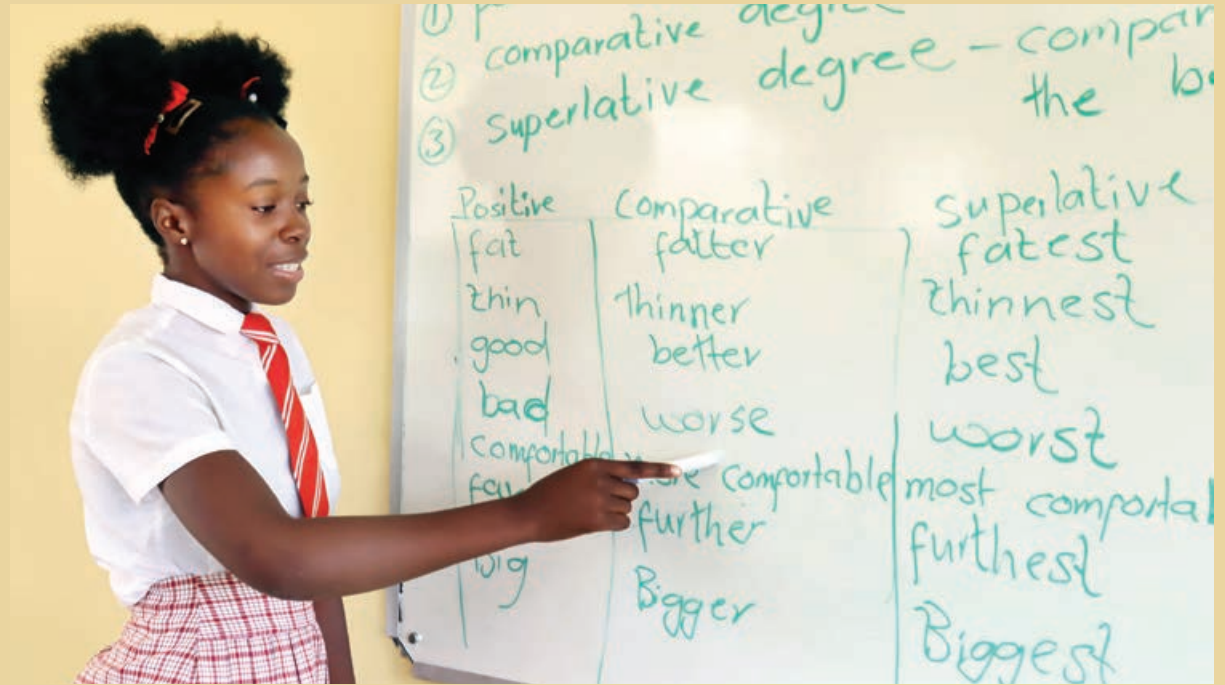 ①
② comparative degree
③ superlative degree – compar
the b
Positive Comparative Superlative
fat fatter fatest
thin thinner thinnest
good better best
bad worse worst
comfortable comfortable most comforta
further furthest
Big Bigger Biggest